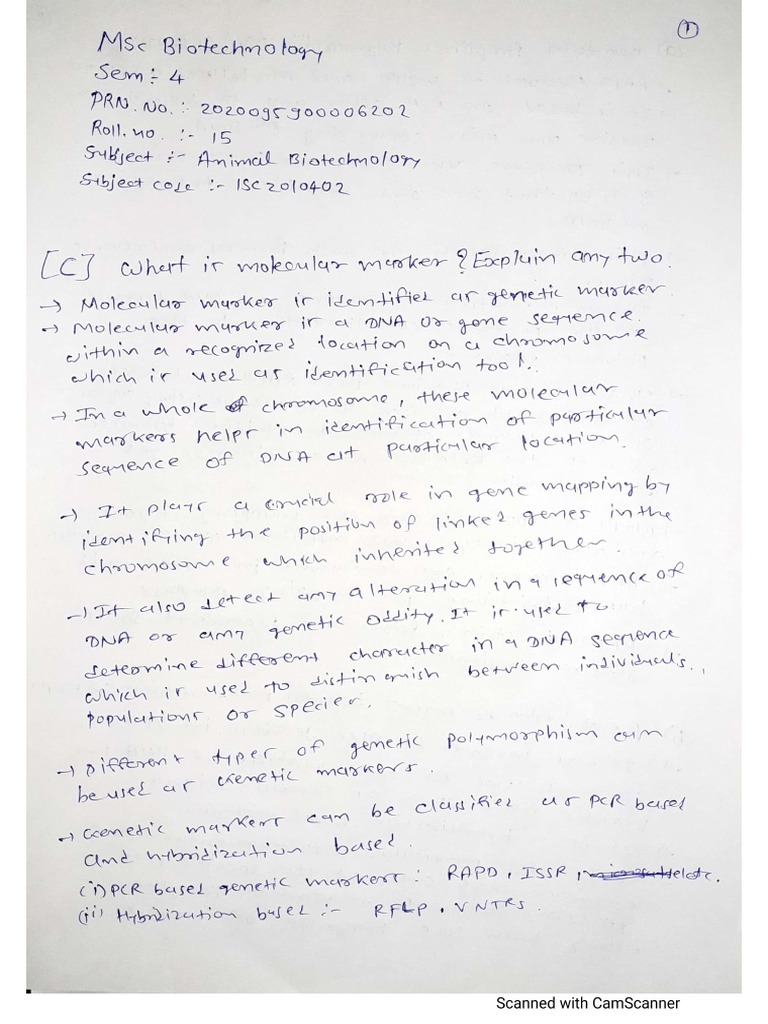 1
MSc Biotechnology
Sem :- 4
PRN. No. :- 2020095900006202
Roll. no :- 15
Subject :- Animal Biotechnology
Subject code :- ISC2010402
[C] What is molecular marker? Explain any two.
→ Molecular marker is identified as genetic marker.
→ Molecular marker is a DNA or gene sequence
within a recognized location on a chromosome
which is used as identification tool.
→ In a whole chromosome, these molecular
markers helps in identification of particular
sequence of DNA at particular location.
→ It plays a crucial role in gene mapping by
identifying the position of linked genes in the
chromosome which inherited together.
→ It also detect any alteration in a sequence of
DNA or any genetic oddity. It is used to
determine different character in a DNA sequence
which is used to distinguish between individuals,
populations or species.
→ Different types of genetic polymorphism can
be used as Genetic markers.
→ Genetic markers can be classified as PCR based
and hybridization based.
(i) PCR based genetic markers : RAPD, ISSR, etc.
(ii) Hybridization based :- RFLP, VNTRs.
Scanned with CamScanner